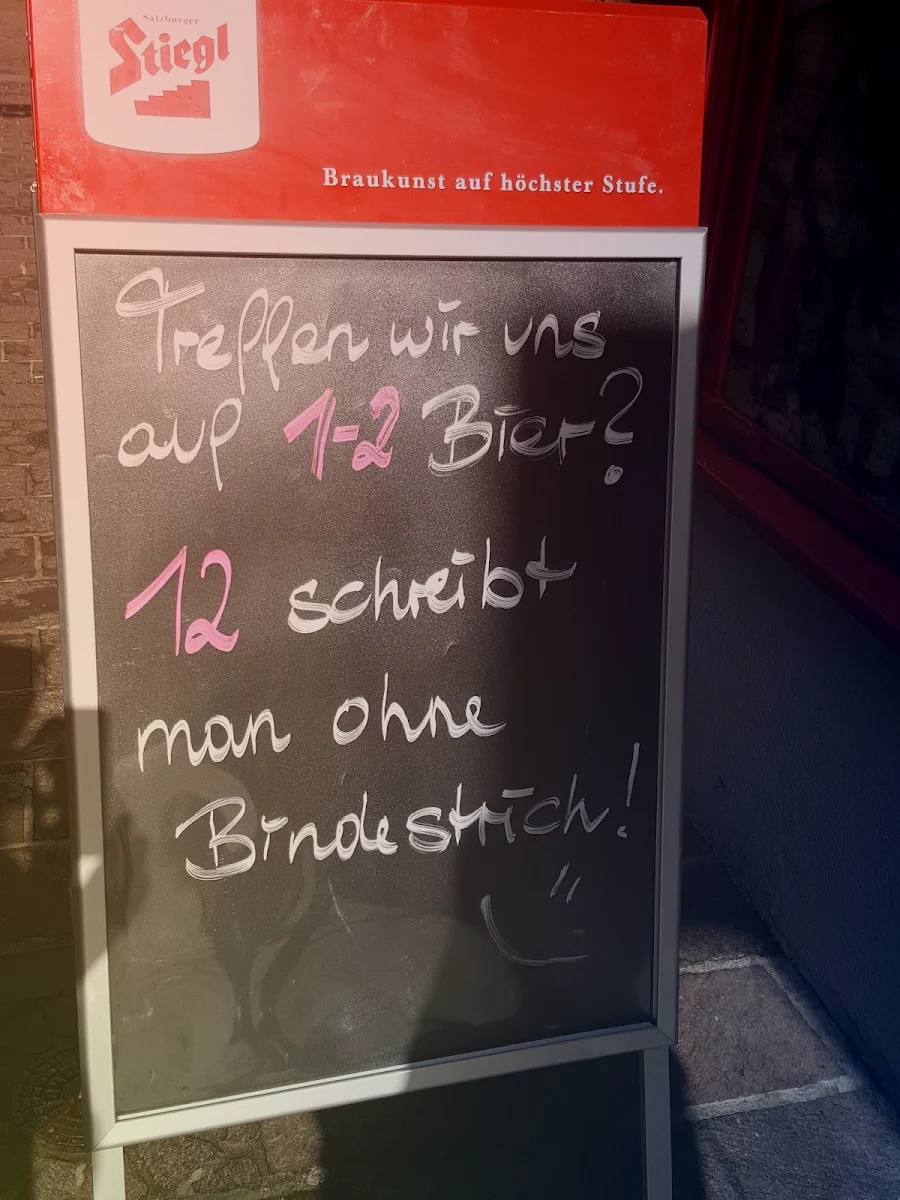 Salzburger
Stiegl
Braukunst auf höchster Stufe.
Treffen wir uns
auf 1-2 Bier?
12 schreibt
man ohne
Bindestrich!